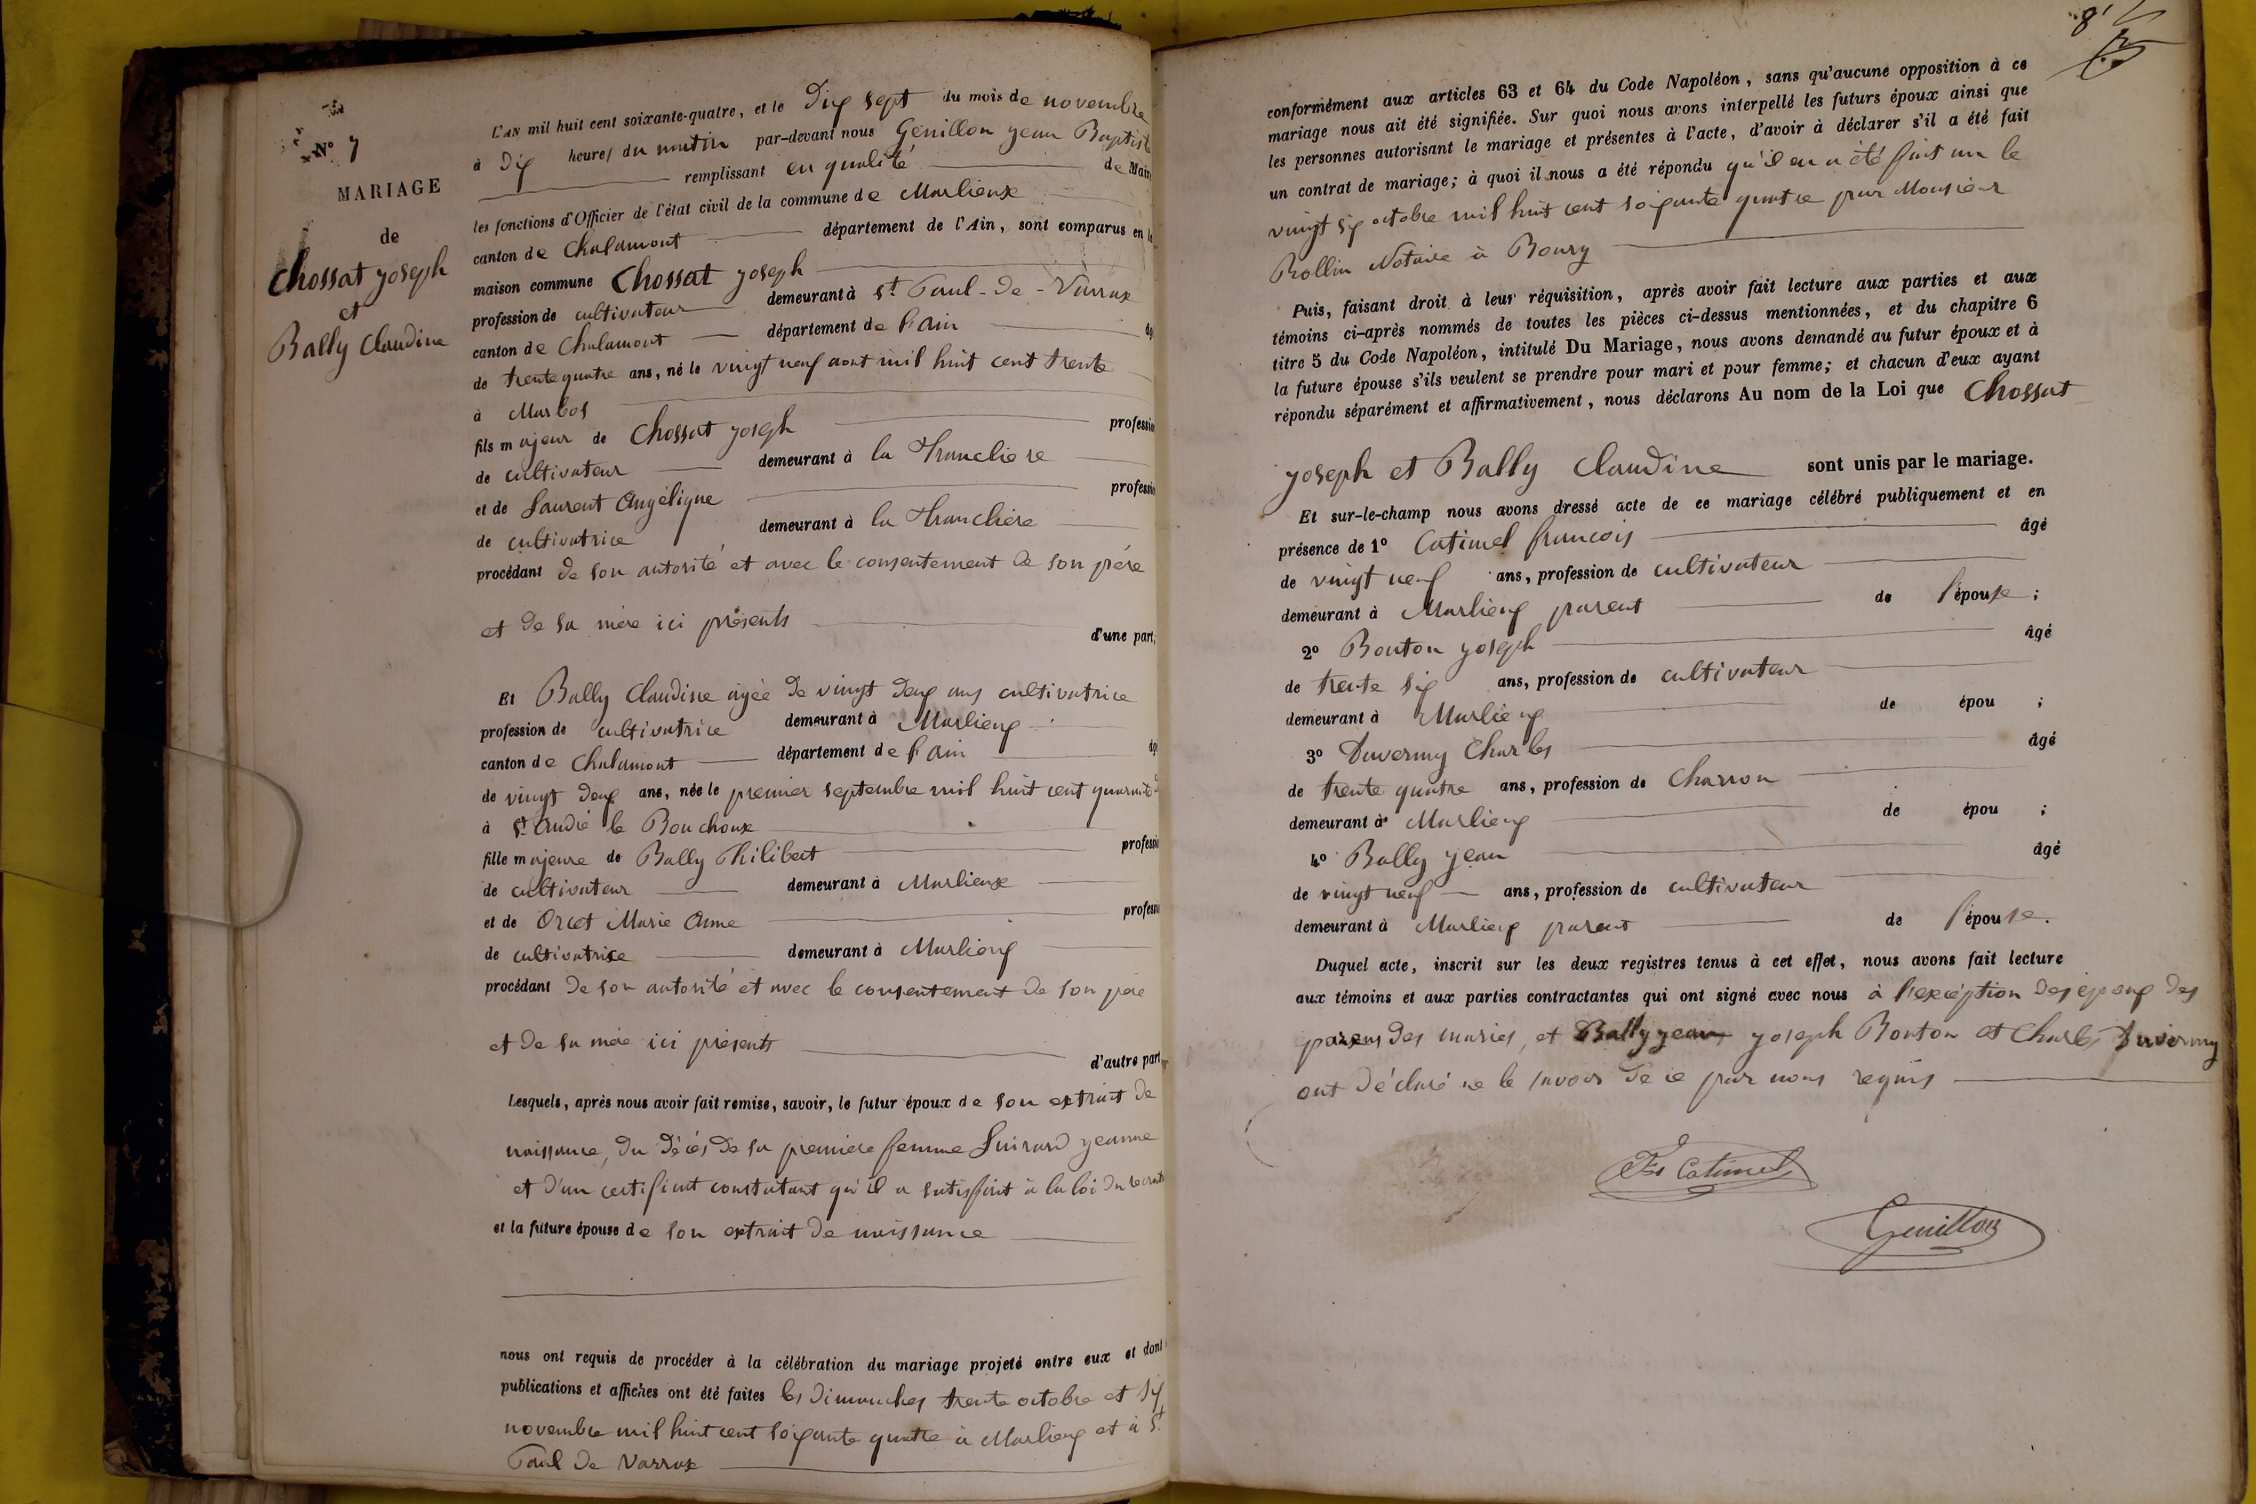 N° 7
MARIAGE
de
Chossat Joseph
et
Bally Claudine
L'AN mil huit cent soixante-quatre, et le Dix sept du mois de novembre
à Dix heures du matin par-devant nous Genillon Jean Baptiste
remplissant en qualité de Maire
les fonctions d'Officier de l'état civil de la commune de Marlieux
canton de Chalamont département de l'Ain, sont comparus en la
maison commune Chossat Joseph
profession de cultivateur demeurant à St Paul-de-Varrax
canton de Chalamont département de l'ain
de trente quatre ans, né le vingt neuf aout mil huit cent trente
à Marbos
fils majeur de Chossat Joseph professio
de cultivateur demeurant à la Trancliere
et de Laurent Angélique professio
de cultivatrice demeurant à la Tranclière
procédant de son autorité et avec le consentement de son père
et de sa mère ici présents d'une part;
Et Bally Claudine agée de vingt deux ans cultivatrice
profession de cultivatrice demeurant à Marlieux
canton de Chalamont département de l'ain
de vingt deux ans, née le premier septembre mil huit cent quarante
à St André le Bouchoux
fille majeure de Bally Philibert professio
de cultivateur demeurant à Marlieux
et de Orcet Marie Anne professio
de cultivatrice demeurant à Marlieux
procédant de son autorité et avec le consentement de son père
et de sa mère ici présents d'autre part
Lesquels, après nous avoir fait remise, savoir, le futur époux de son extrait de
naissance, du décés de sa première femme Jeanne
et d'un certificat constatant qu'il a satisfait à la loi du
et la future épouse de son extrait de naissance
nous ont requis de procéder à la célébration du mariage projeté entre eux et dont
publications et affiches ont été faites les dimanches trente octobre et six
novembre mil huit cent soixante quatre à Marlieux et à St
Paul de Varrax
8
conformément aux articles 63 et 64 du Code Napoléon, sans qu'aucune opposition à ce
mariage nous ait été signifiée. Sur quoi nous avons interpellé les futurs époux ainsi que
les personnes autorisant le mariage et présentes à l'acte, d'avoir à déclarer s'il a été fait
un contrat de mariage; à quoi il nous a été répondu qu'il en a été fait un le
vingt six octobre mil huit cent soixante quatre par Monsieur
Rollin Notaire à Bourg
Puis, faisant droit à leur réquisition, après avoir fait lecture aux parties et aux
témoins ci-après nommés de toutes les pièces ci-dessus mentionnées, et du chapitre 6
titre 5 du Code Napoléon, intitulé Du Mariage, nous avons demandé au futur époux et à
la future épouse s'ils veulent se prendre pour mari et pour femme; et chacun d'eux ayant
répondu séparément et affirmativement, nous déclarons Au nom de la Loi que Chossat
Joseph et Bally Claudine sont unis par le mariage.
Et sur-le-champ nous avons dressé acte de ce mariage célébré publiquement et en
présence de 1° Catimel francois âgé
de vingt neuf ans, profession de cultivateur
demeurant à Marlieux parent de l'épouse;
2° Bouton Joseph âgé
de trente six ans, profession de cultivateur
demeurant à Marlieux de épou ;
3° Duvernay Charles âgé
de trente quatre ans, profession de Charron
demeurant à Marlieux de épou ;
4° Bally Jean âgé
de vingt neuf ans, profession de cultivateur
demeurant à Marlieux parent de l'épouse.
Duquel acte, inscrit sur les deux registres tenus à cet effet, nous avons fait lecture
aux témoins et aux parties contractantes qui ont signé avec nous à l'exception des époux des
parens des mariés, et Bally Jean Joseph Bouton et Charles Duvernay
ont déclaré ne le savoir de ce par nous requis
Fs Catimel
Genillon